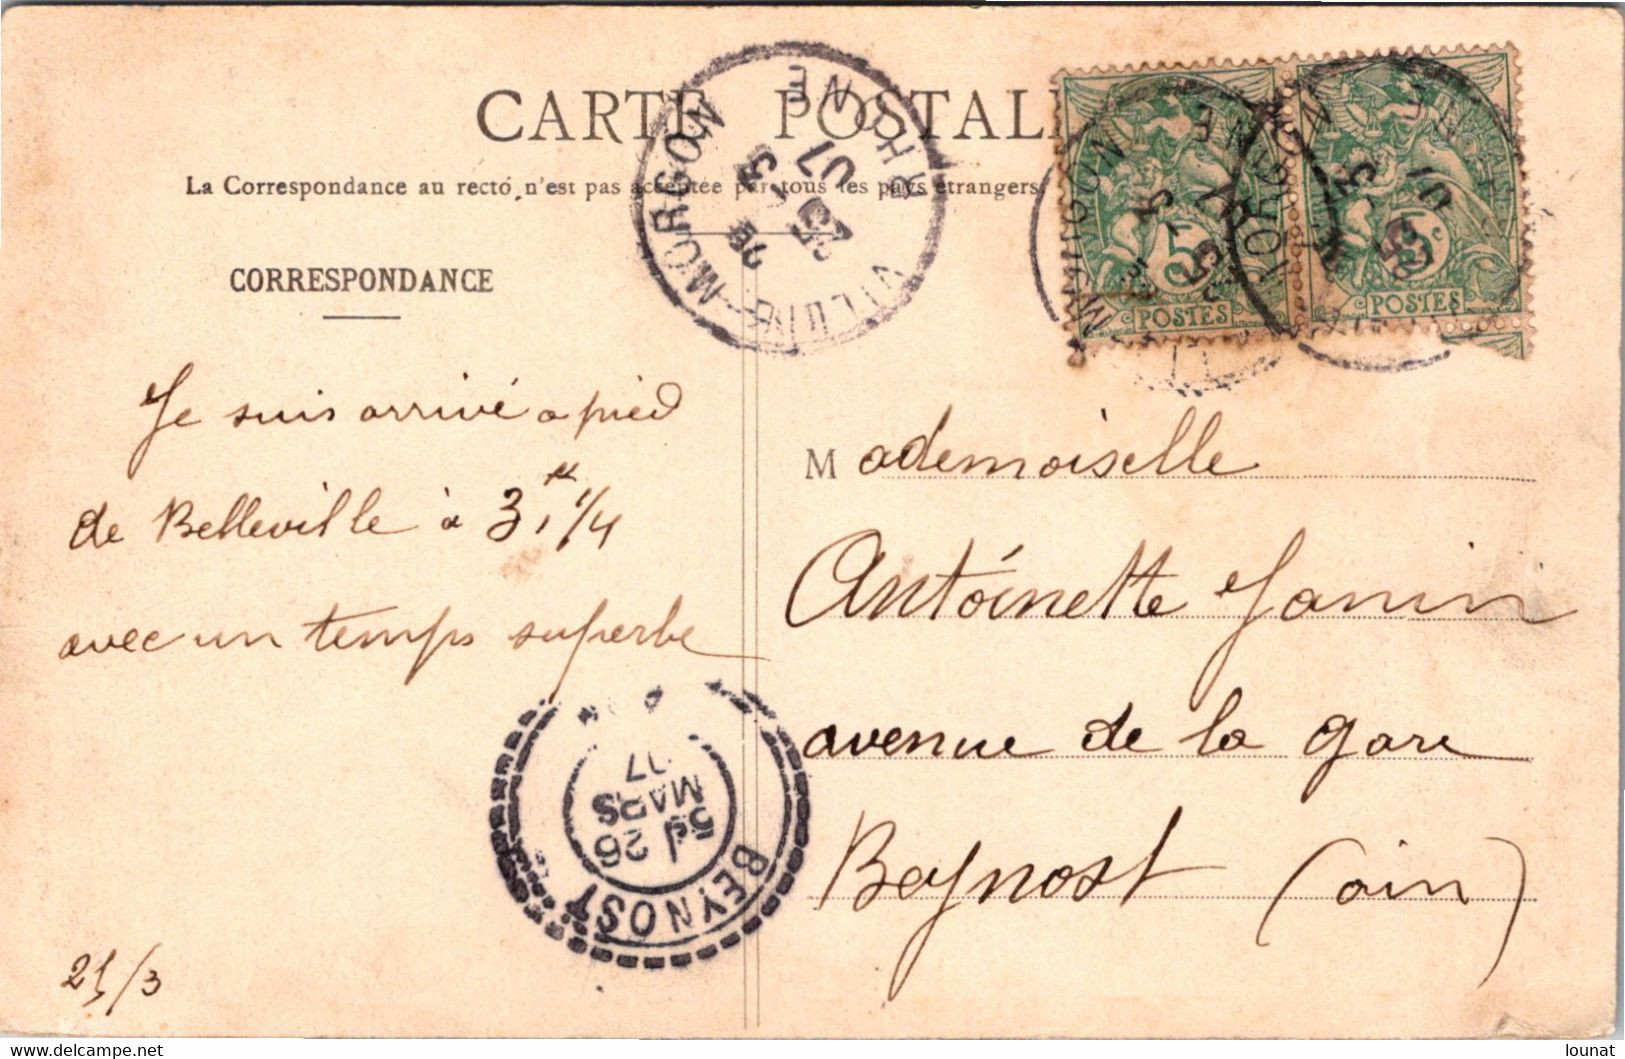 CARTE POSTALE
La Correspondance au recto n'est pas acceptée par tous les pays étrangers
CORRESPONDANCE
VILLIÉ-MORGON
RHONE
25
-3
07
5c
POSTES
5c
POSTES
Je suis arrivé a pied
de Belleville à 3h 1/4
avec un temps superbe
25/3
Mademoiselle
Antóinette Janin
avenue de la gare
Beynost (ain)
BEYNOST
26
MARS
07
www.delcampe.net
lounat